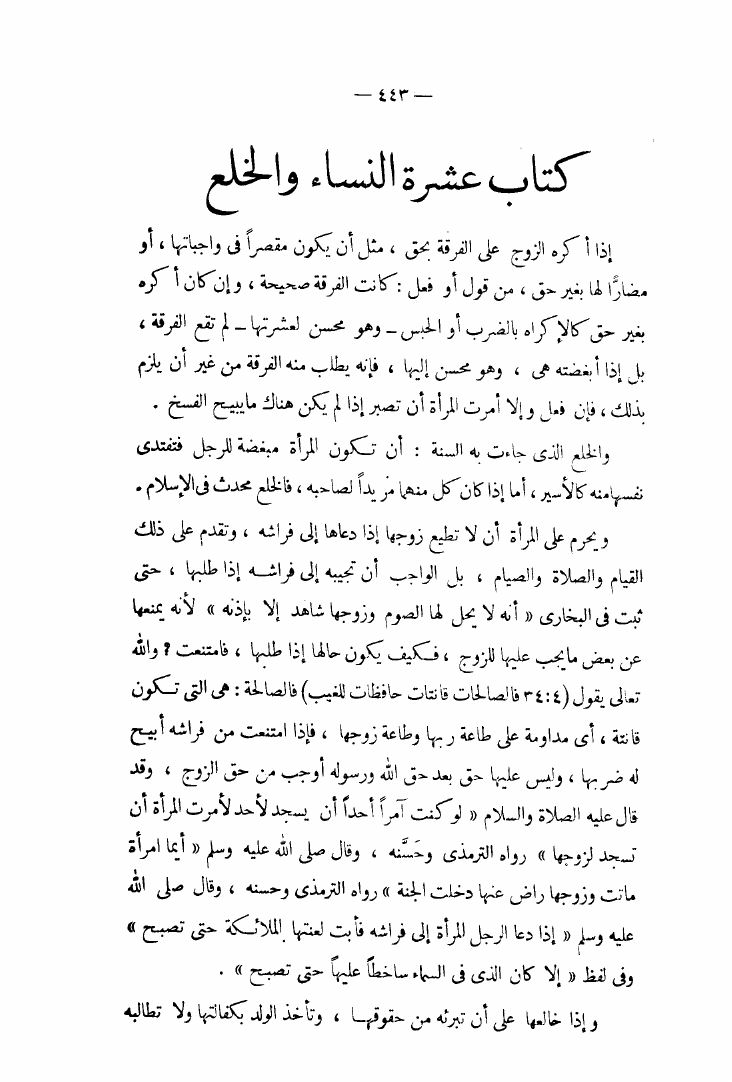 — ٤٤٣ —
كتاب عشرة النساء والخلع
إذا أكره الزوج على الفرقة بحق ، مثل أن يكون مقصراً فى واجباتها ، أو
مضارًّا لها بغير حق ، من قول أو فعل : كانت الفرقة صحيحة ، وإن كان أكره
بغير حق كالإكراه بالضرب أو الحبس ــ وهو محسن لعشرتها ــ لم تقع الفرقة ،
بل إذا أبغضته هى ، وهو محسن إليها ، فإنه يطلب منه الفرقة من غير أن يلزم
بذلك ، فإن فعل وإلا أمرت المرأة أن تصبر إذا لم يكن هناك مايبيح الفسخ .
والخلع الذى جاءت به السنة : أن تكون المرأة مبغضة للرجل فتفتدى
نفسهامنه كالأسير ، أما إذا كان كل منهما مريداً لصاحبه ، فالخلع محدث فى الإسلام .
ويحرم على المرأة أن لا تطيع زوجها إذا دعاها إلى فراشه ، وتقدم على ذلك
القيام والصلاة والصيام ، بل الواجب أن تجيبه إلى فراشه إذا طلبها ، حتى
ثبت فى البخارى « أنه لا يحل لها الصوم وزوجها شاهد إلا بإذنه » لأنه يمنعها
عن بعض مايجب عليها للزوج ، فكيف يكون حالها إذا طلبها ، فامتنعت ؟ والله
تعالى يقول (٣٤:٤ فالصالحات قانتات حافظات للغيب) فالصالحة : هى التى تكون
قانتة ، أى مداومة على طاعة ربها وطاعة زوجها ، فإذا امتنعت من فراشه أبيح
له ضربها ، وليس عليها حق بعد حق الله ورسوله أوجب من حق الزوج ، وقد
قال عليه الصلاة والسلام « لو كنت آمراً أحداً أن يسجد لأحد لأمرت المرأة أن
تسجد لزوجها » رواه الترمذى وحَسَّنه ، وقال صلى الله عليه وسلم « أيما امرأة
ماتت وزوجها راض عنها دخلت الجنة » رواه الترمذى وحسنه ، وقال صلى الله
عليه وسلم « إذا دعا الرجل المرأة إلى فراشه فأبت لعنتها الملائكة حتى تصبح »
وفى لفظ « إلا كان الذى فى السماء ساخطاً عليهاً حتى تصبح » .
وإذا خالعها على أن تبرئه من حقوقها ، وتأخذ الولد بكفالتها ولا تطالبه